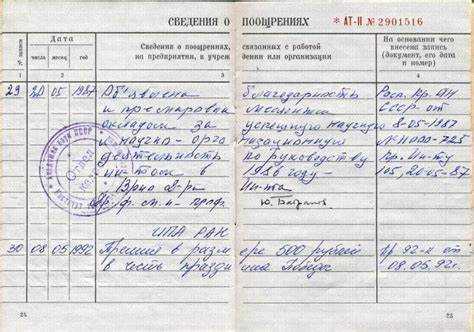 СВЕДЕНИЯ О ПООЩРЕНИЯХ * АТ-II № 2901516
№ записи Дата Сведения о поощрениях, связанных с работой На основании чего
внесена запись
число месяц год на предприятии, в учреждении или организации (документ, его дата
и номер)
1 2 3 4
29 20 05 1987 Объявлена благодарность Расп. Пр. АН
и премирован месячным СССР от
окладом за успешную научную 8-05-1987
и научно-организационную № 11000-725
деятельность по руководству Пр. Ин-ту
ин-том в 1986 году – 105, 20.05-87
Врио Д-ра Ин-та
ИПА РАН
30 08 05 1992 Премия в размере 500 рублей Пр 92-к от
в честь праздника Победы 08.05.92г.
24 25